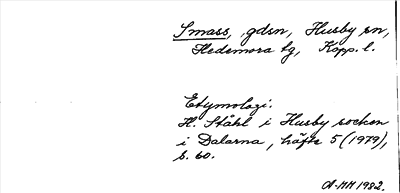 Smass, gdsn, Husby sn,
Hedemora tg, Kopp. l.
Etymologi.
H. Ståhl i Husby socken
i Dalarna, häfte 5 (1979),
s. 60.
A-MH 1982.